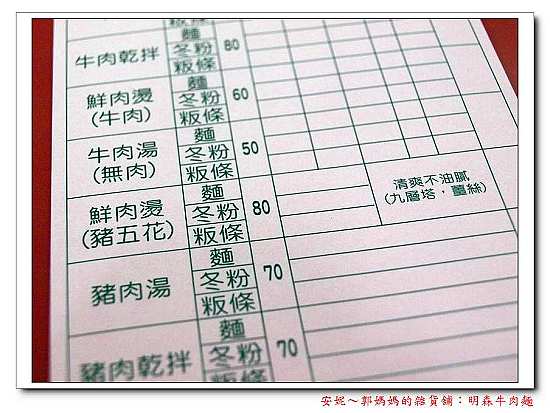 麵
牛肉乾拌 冬粉 80
粄條
麵
鮮肉燙 冬粉 60
(牛肉) 粄條
麵
牛肉湯 冬粉 50
(無肉) 粄條
麵
鮮肉燙 冬粉 80
(豬五花) 粄條
清爽不油膩
(九層塔．薑絲)
麵
豬肉湯 冬粉 70
粄條
麵
豬肉乾拌 冬粉 70
粄條
安妮～郭媽媽的雜貨舖：明森牛肉麵